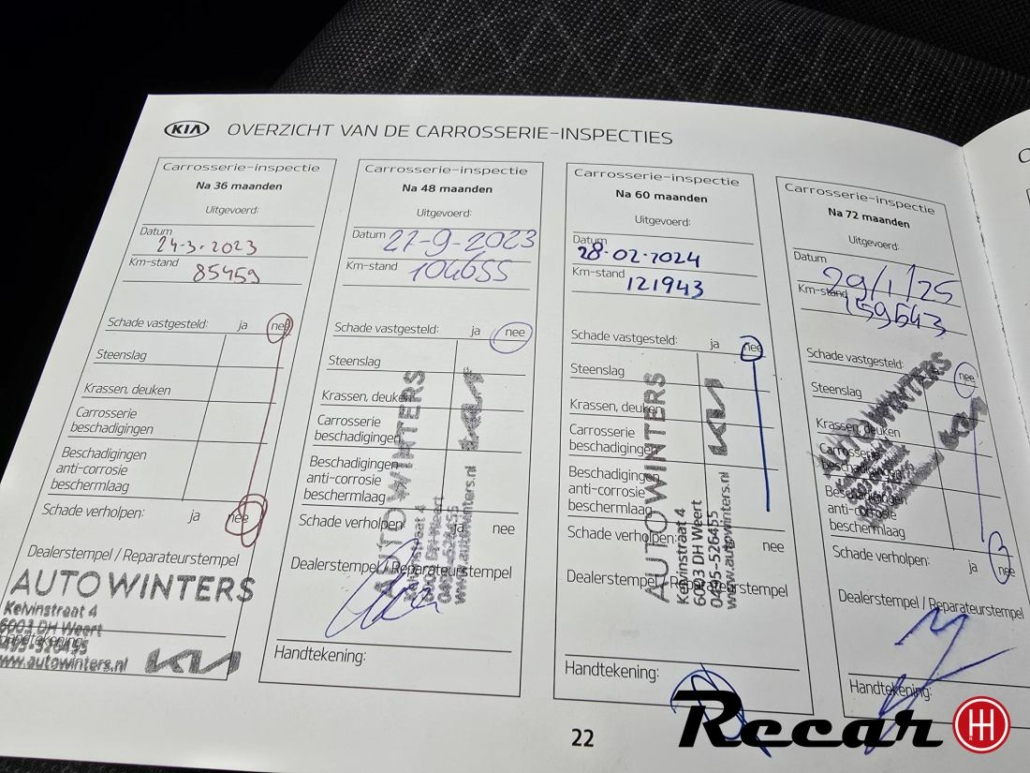 KIA OVERZICHT VAN DE CARROSSERIE-INSPECTIES
Carrosserie-inspectie
Na 36 maanden
Uitgevoerd:
Datum 24-3-2023
Km-stand 85459
Schade vastgesteld: ja nee
Steenslag
Krassen, deuken
Carrosserie
beschadigingen
Beschadigingen
anti-corrosie
beschermlaag
Schade verholpen: ja nee
Dealerstempel / Reparateurstempel
AUTO WINTERS
Kelvinstraat 4
6003 DH Weert
0495-526455
www.autowinters.nl
KIA
Carrosserie-inspectie
Na 48 maanden
Uitgevoerd:
Datum 27-9-2023
Km-stand 104655
Schade vastgesteld: ja nee
Steenslag
Krassen, deuken
Carrosserie
beschadigingen
Beschadigingen
anti-corrosie
beschermlaag
Schade verholpen ja nee
Dealerstempel / Reparateurstempel
AUTO WINTERS
Kelvinstraat 4
6003 DH Weert
0495-526455
www.autowinters.nl
KIA
Handtekening:
Carrosserie-inspectie
Na 60 maanden
Uitgevoerd:
Datum 28-02-2024
Km-stand 121943
Schade vastgesteld: ja nee
Steenslag
Krassen, deuken
Carrosserie
beschadigingen
Beschadigingen
anti-corrosie
beschermlaag
Schade verholpen: nee
Dealerstempel / Reparateurstempel
AUTO WINTERS
Kelvinstraat 4
6003 DH Weert
0495-526455
www.autowinters.nl
KIA
Handtekening:
Carrosserie-inspectie
Na 72 maanden
Uitgevoerd:
Datum 29/1/25
Km-stand 159643
Schade vastgesteld: ja nee
Steenslag
Krassen, deuken
Carrosserie
beschadigingen
Beschadigingen
anti-corrosie
beschermlaag
Schade verholpen: ja nee
Dealerstempel / Reparateurstempel
AUTO WINTERS
KIA
Handtekening:
22
Recar